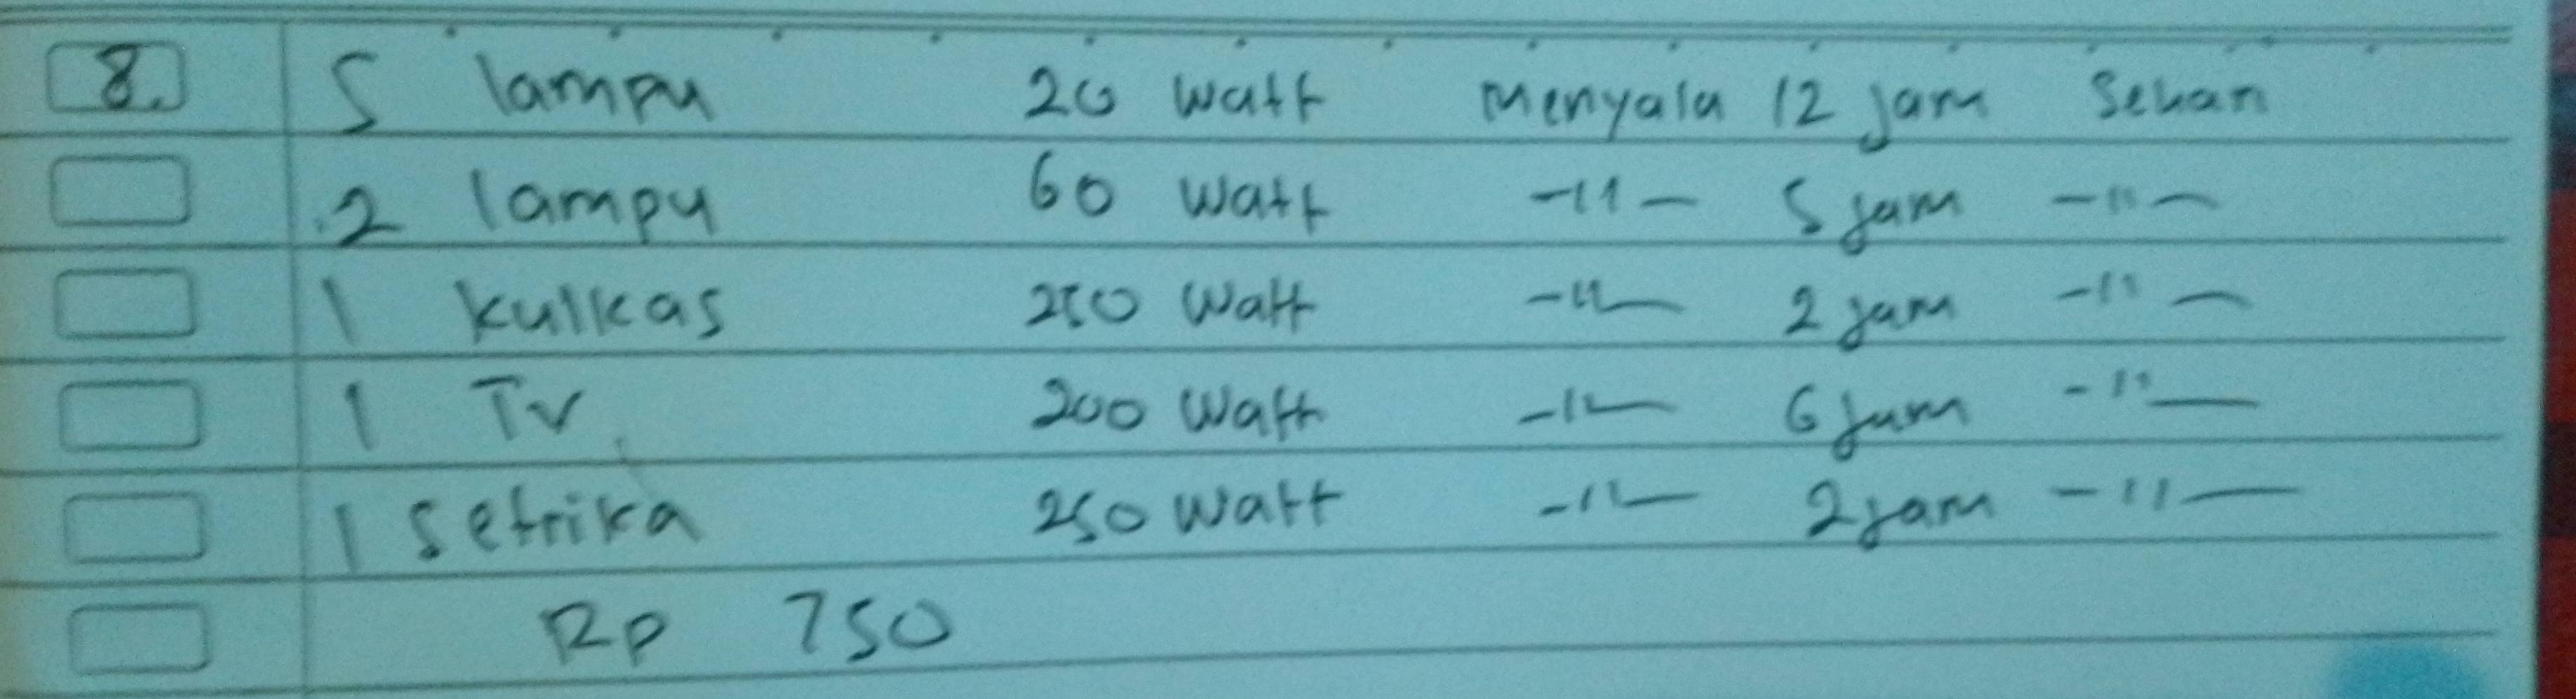 8. 5 lampu 20 watt menyala 12 jam sehari
2 lampu 60 watt -11- 5 jam -11-
1 kulkas 250 watt -11- 2 jam -11-
1 Tv 200 watt -11- 6 jam -11-
1 setrika 250 watt -11- 2 jam -11-
Rp 750